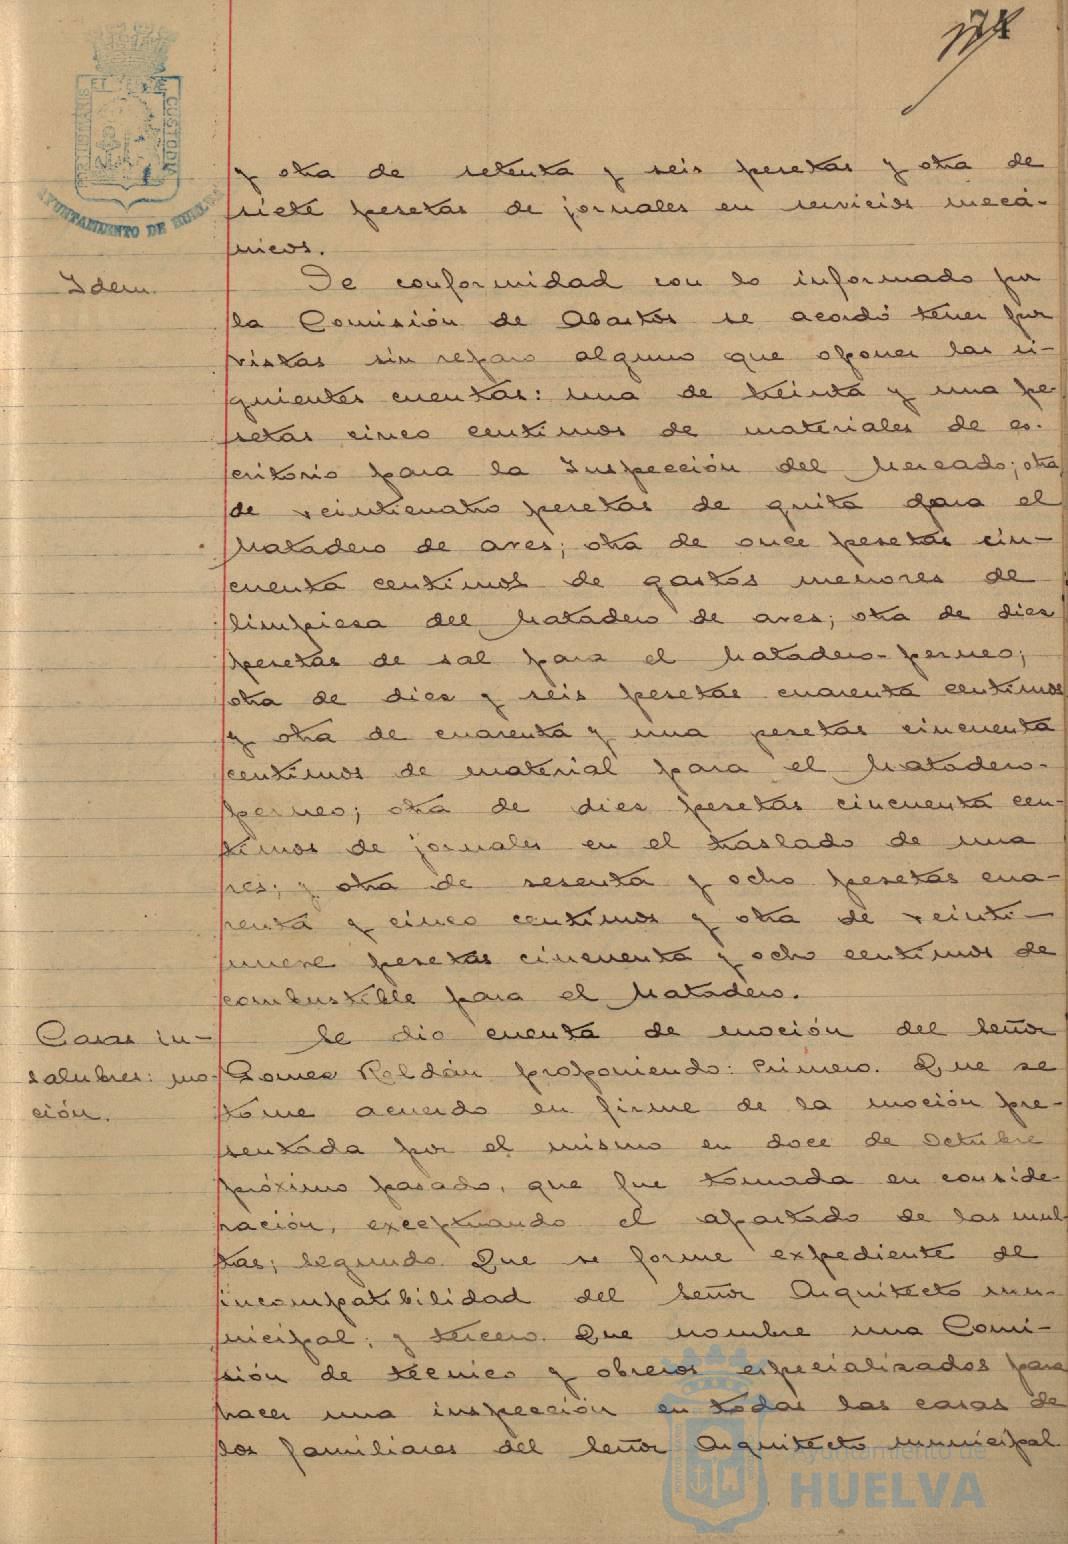 74
PORTUS MARIS ET TERRE CUSTODIA
AYUNTAMIENTO DE HUELVA
y otra de setenta y seis pesetas y otra de
siete pesetas de jornales en servicios mecá-
nicos.
Idem.
De conformidad con lo informado por
la Comisión de Abastos se acordó tener por
vistas sin reparo alguno que oponer las si-
guientes cuentas: una de treinta y una pe-
setas cinco centimos de materiales de es-
critorio para la Inspección del Mercado; otra
de veinticuatro pesetas de guita para el
Matadero de aves; otra de once pesetas cin-
cuenta centimos de gastos menores de
limpiesa del Matadero de aves; otra de dies
pesetas de sal para el Matadero-perneo;
otra de dies y seis pesetas cuarenta centimos
y otra de cuarenta y una pesetas cincuenta
centimos de material para el Matadero-
perneo; otra de dies pesetas cincuenta cen-
timos de jornales en el traslado de una
res; y otra de sesenta y ocho pesetas cua-
renta y cinco centimos y otra de veinti-
nueve pesetas cincuenta y ocho centimos de
combustible para el Matadero.
Casas in-
salubres: mo-
ción.
Se dio cuenta de moción del Señor
Gomes Roldán proponiendo: Primero. Que se
tome acuerdo en firme de la moción pre-
sentada por el mismo en doce de Octubre
próximo pasado, que fue tomada en conside-
ración, exceptuando el apartado de las mul-
tas; Segundo. Que se forme expediente de
incompatibilidad del Señor Arquitecto mu-
nicipal; y tercero. Que nombre una Comi-
sión de técnico y obreros especializados para
hacer una inspección en todas las casas de
los familiares del Señor Arquitecto municipal
Ayuntamiento de
HUELVA